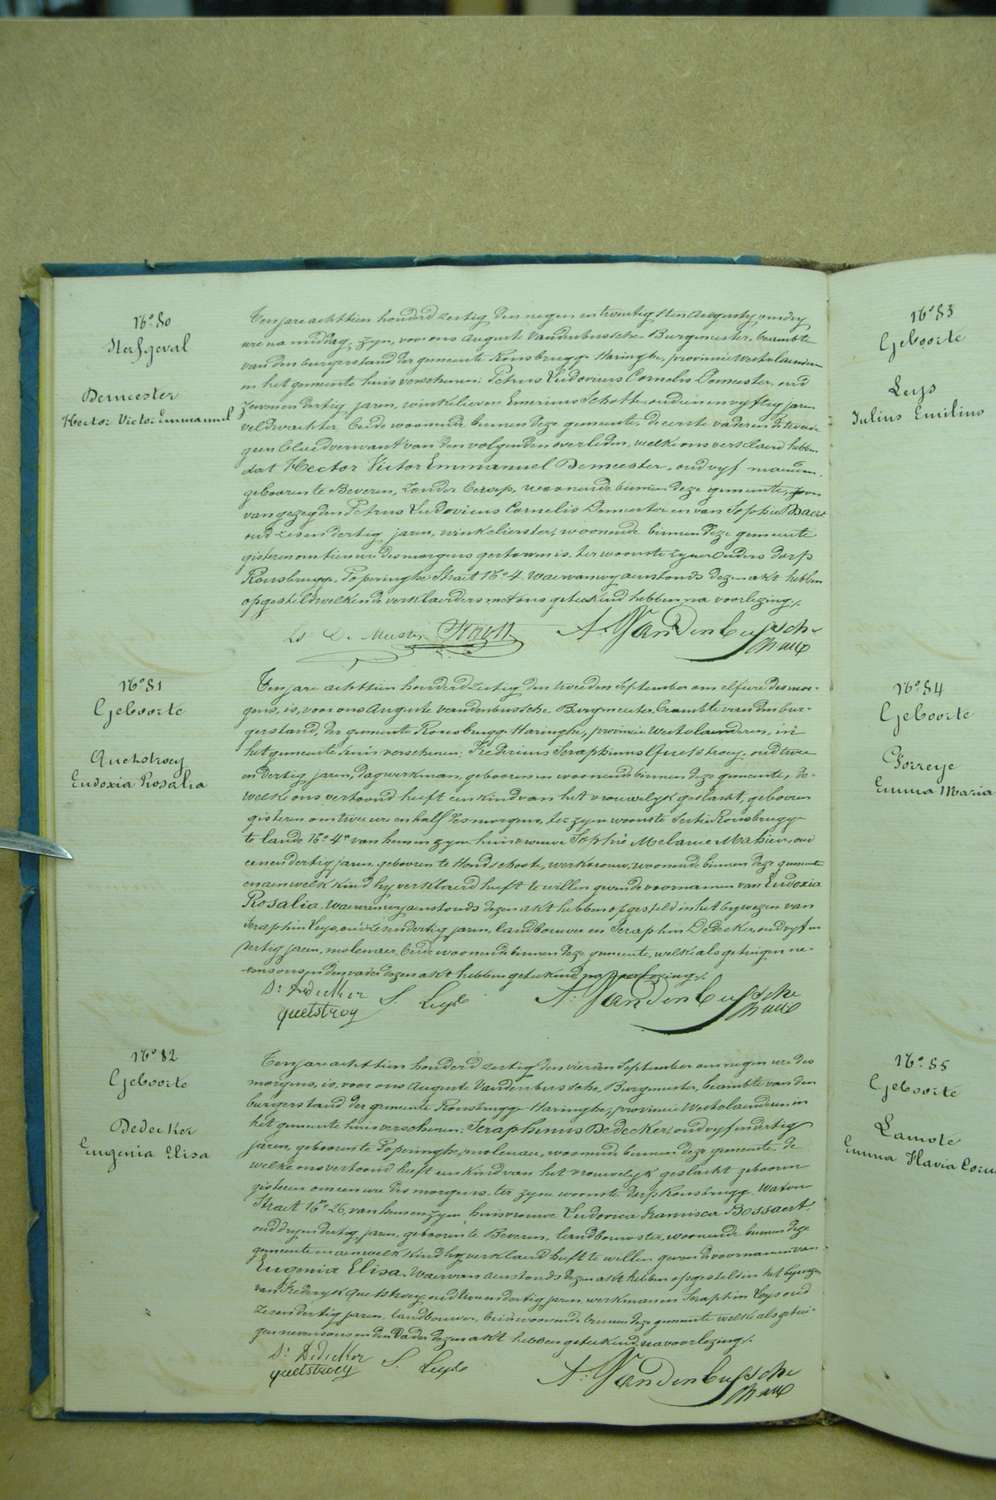 N° 80
Sterfgeval
Demeester
Hector Victor Emmanuel
Ten jare achttien honderd zestig den negen en twintigsten Augusty om dry
ure na middag, zyn, voor ons August Vandenbussche Burgmeester, beambte
van den burgerstand der gemeente Rousbrugge Haringhe, provincie Westvlaenderen
in het gemeente huis verschenen: Petrus Ludovicus Cornelis Demeester, oud
zeven en dertig jaren, winkelier en Emerinus Schotte oud een en vyftig jaren
veldwachter, beide woonende binnen deze gemeente, de eerste vader en de tweede
geen bloedverwant van den volgenden overleden, welke ons verklaerd hebben
dat Hector Victor Emmanuel Demeester, oud vyf maenden,
geboren te Beveren, zonder beroep, woonende binnen deze gemeente, zoon
van gezegden Petrus Ludovicus Cornelis Demeester en van Sophie Baert
oud zes en dertig jaren, winkelierster, woonende binnen deze gemeente
gisteren om tien ure des morgens gestorven is, ter woonste zyner ouders dorp
Rousbrugge, Poperinghe Straet N° 4. Waervan wy aenstonds dezen akt hebben
opgesteld welken de verklaerders met ons geteekend hebben na voorlezing.
Ls D. Meester Schotte A. Vandenbussche
N° 81
Geboorte
Quetstroey
Eudoxia Rosalia
Ten jare achttien honderd zestig den tweeden September om elf ure des mor-
gens, is, voor ons Auguste Vandenbussche Burgmeester, beambte van den bur-
gerstand, der gemeente Rousbrugge Haringhe, provincie Westvlaenderen, in
het gemeente huis verschenen: Fredericus Seraphinus Quetstroey, oud twee
en dertig jaren, dagwerkman, geboren en woonende binnen deze gemeente, de-
welke ons vertoond heeft een kind van het vrouwelyk geslacht, geboren
gisteren om twee ure en half des morgens, ter zyner woonste Sectie Rousbrugge
te lande N° 4 van hem en zyne huisvrouwe Sophie Melanie Mahieu, oud
een en dertig jaren, geboren te Hondschoote, werkvrouw, woonende binnen deze gemeente
en aen welk kind hy verklaerd heeft te willen geven de voornamen van Eudoxia
Rosalia. Waervan wy aenstonds dezen akt hebben opgesteld in het bywezen van
Seraphin Leys, oud zes en dertig jaren, landbouwer en Seraphin Dedecker, oud vyf en
dertig jaren, molenaer, beide woonende binnen deze gemeente, welke als getuigen ne-
vens ons en den vader dezen akt hebben geteekend na voorlezing.
Sn Dedecker S. Leys A. Vandenbussche
quetstroy
N° 82
Geboorte
Dedecker
Eugenia Elisa
Ten jare achttien honderd zestig den vierden September om negen ure des
morgens, is, voor ons Auguste Vandenbussche, Burgmeester, beambte van den
burgerstand der gemeente Rousbrugge Haringhe, provincie Westvlaenderen in
het gemeente huis verschenen: Seraphinus Dedecker, oud vyf en dertig
jaren, geboren te Poperinghe, molenaer, woonende binnen deze gemeente, de-
welke ons vertoond heeft een kind van het vrouwelyk geslacht geboren
gisteren om een ure des morgens, ter zyner woonste dorp Rousbrugge Watou
Straet N° 26, van hem en zyne huisvrouwe Ludovica Francisca Bossaert,
oud dry en dertig jaren, geboren te Beveren, landbouwster, woonende binnen deze
gemeente en aen welk kind hy verklaerd heeft te willen geven de voornamen van
Eugenia Elisa. Waervan aenstonds dezen akt hebben opgesteld in het bywezen
van Frederyk Quetstroey, oud twee en dertig jaren, werkman en Seraphin Leys oud
zes en dertig jaren, landbouwer, beide woonende binnen deze gemeente welke als getui-
gen nevens ons en den Vader dezen akt hebben geteekend, na voorlezing.
Sn Dedecker S. Leys
quetstroy A. Vandenbussche
N° 83
Geboorte
Leys
Julius Emilius
N° 84
Geboorte
Gorreye
Emma Maria
N° 85
Geboorte
Lamote
Emma Flavia